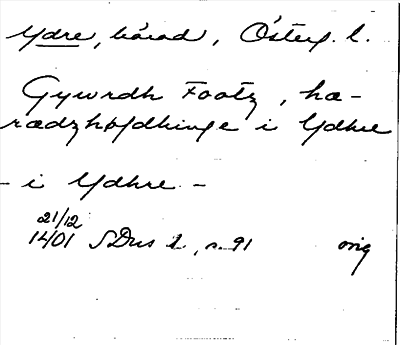 Ydre, härad, Österg. l.
Gywrdh Footz, hæ-
rædzhøfdhinge i Ydhre
- i Ydhre -
21/12
1401 SDns 1, s. 91 orig